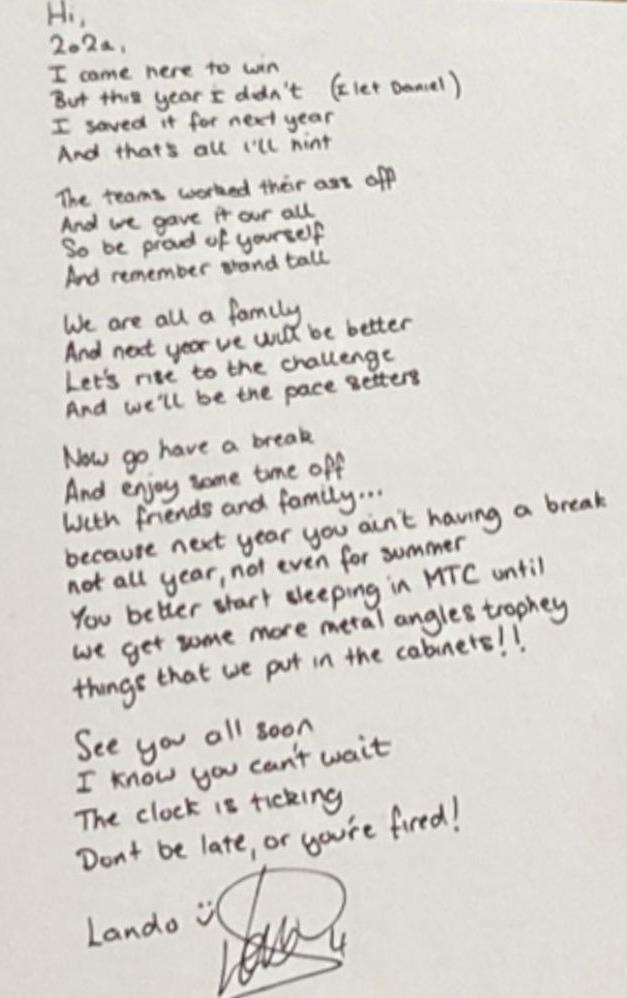 Hi,
202a,
I came here to win
But this year I didn't (I let Daniel)
I saved it for next year
And that's all I'll hint
The teams worked their ass off
And we gave it our all
So be proud of yourself
And remember stand tall
We are all a family
And next year we will be better
Let's rise to the challenge
And we'll be the pace setters
Now go have a break
And enjoy some time off
With friends and family...
because next year you ain't having a break
not all year, not even for summer
You better start sleeping in MTC until
we get some more metal angles trophey
things that we put in the cabinets!!
See you all soon
I know you can't wait
The clock is ticking
Don't be late, or you're fired!
Lando
4